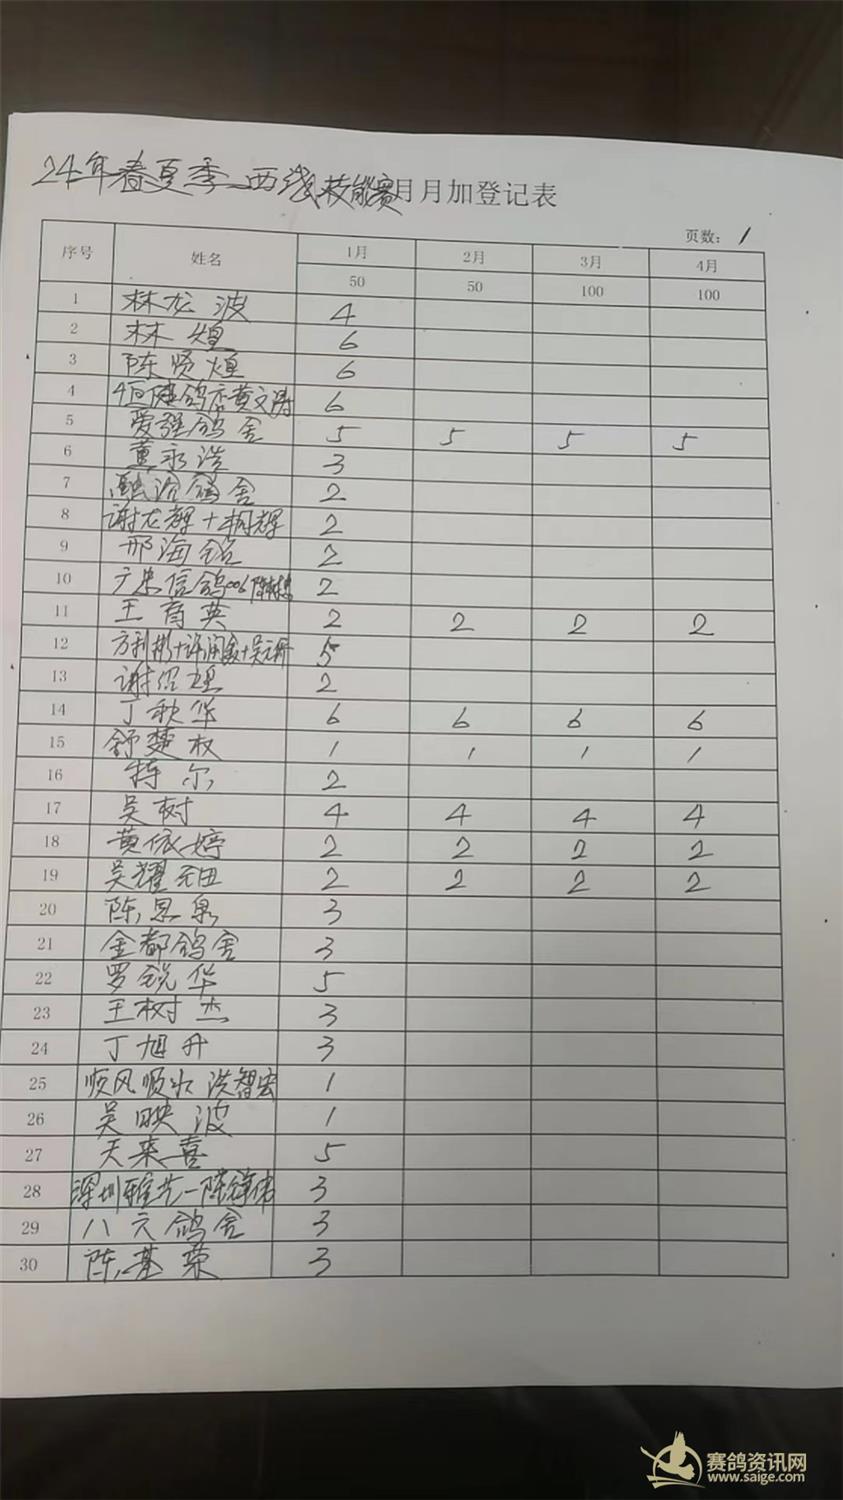 24年春夏季西线技能赛月月加登记表
页数: 1
序号 姓名 1月 2月 3月 4月
50 50 100 100
1 林龙波 4
2 林煌 6
3 陈贤煌 6
4 鸽店黄文涛 6
5 爱强鸽舍 5 5 5 5
6 董永浩 3
7 融洽鸽舍 2
8 谢龙辉+桐辉 2
9 邢海锐 2
10 广忠信鸽006陈 2
11 王育英 2 2 2 2
12 方利彬+许闰+吴 5
13 谢绍煌 2
14 丁秋华 6 6 6 6
15 舒楚权 1 1 1 1
16 特尔 2
17 吴树 4 4 4 4
18 黄依婷 2 2 2 2
19 吴耀钿 2 2 2 2
20 陈思泉 3
21 金都鸽舍 3
22 罗锐华 5
23 王树杰 3
24 丁旭升 3
25 顺风顺水 洪智宏 1
26 吴映波 1
27 天来喜 5
28 深圳雅艺一陈锋伟 3
29 八六鸽舍 3
30 陈基荣 3
赛鸽资讯网
www.saige.com